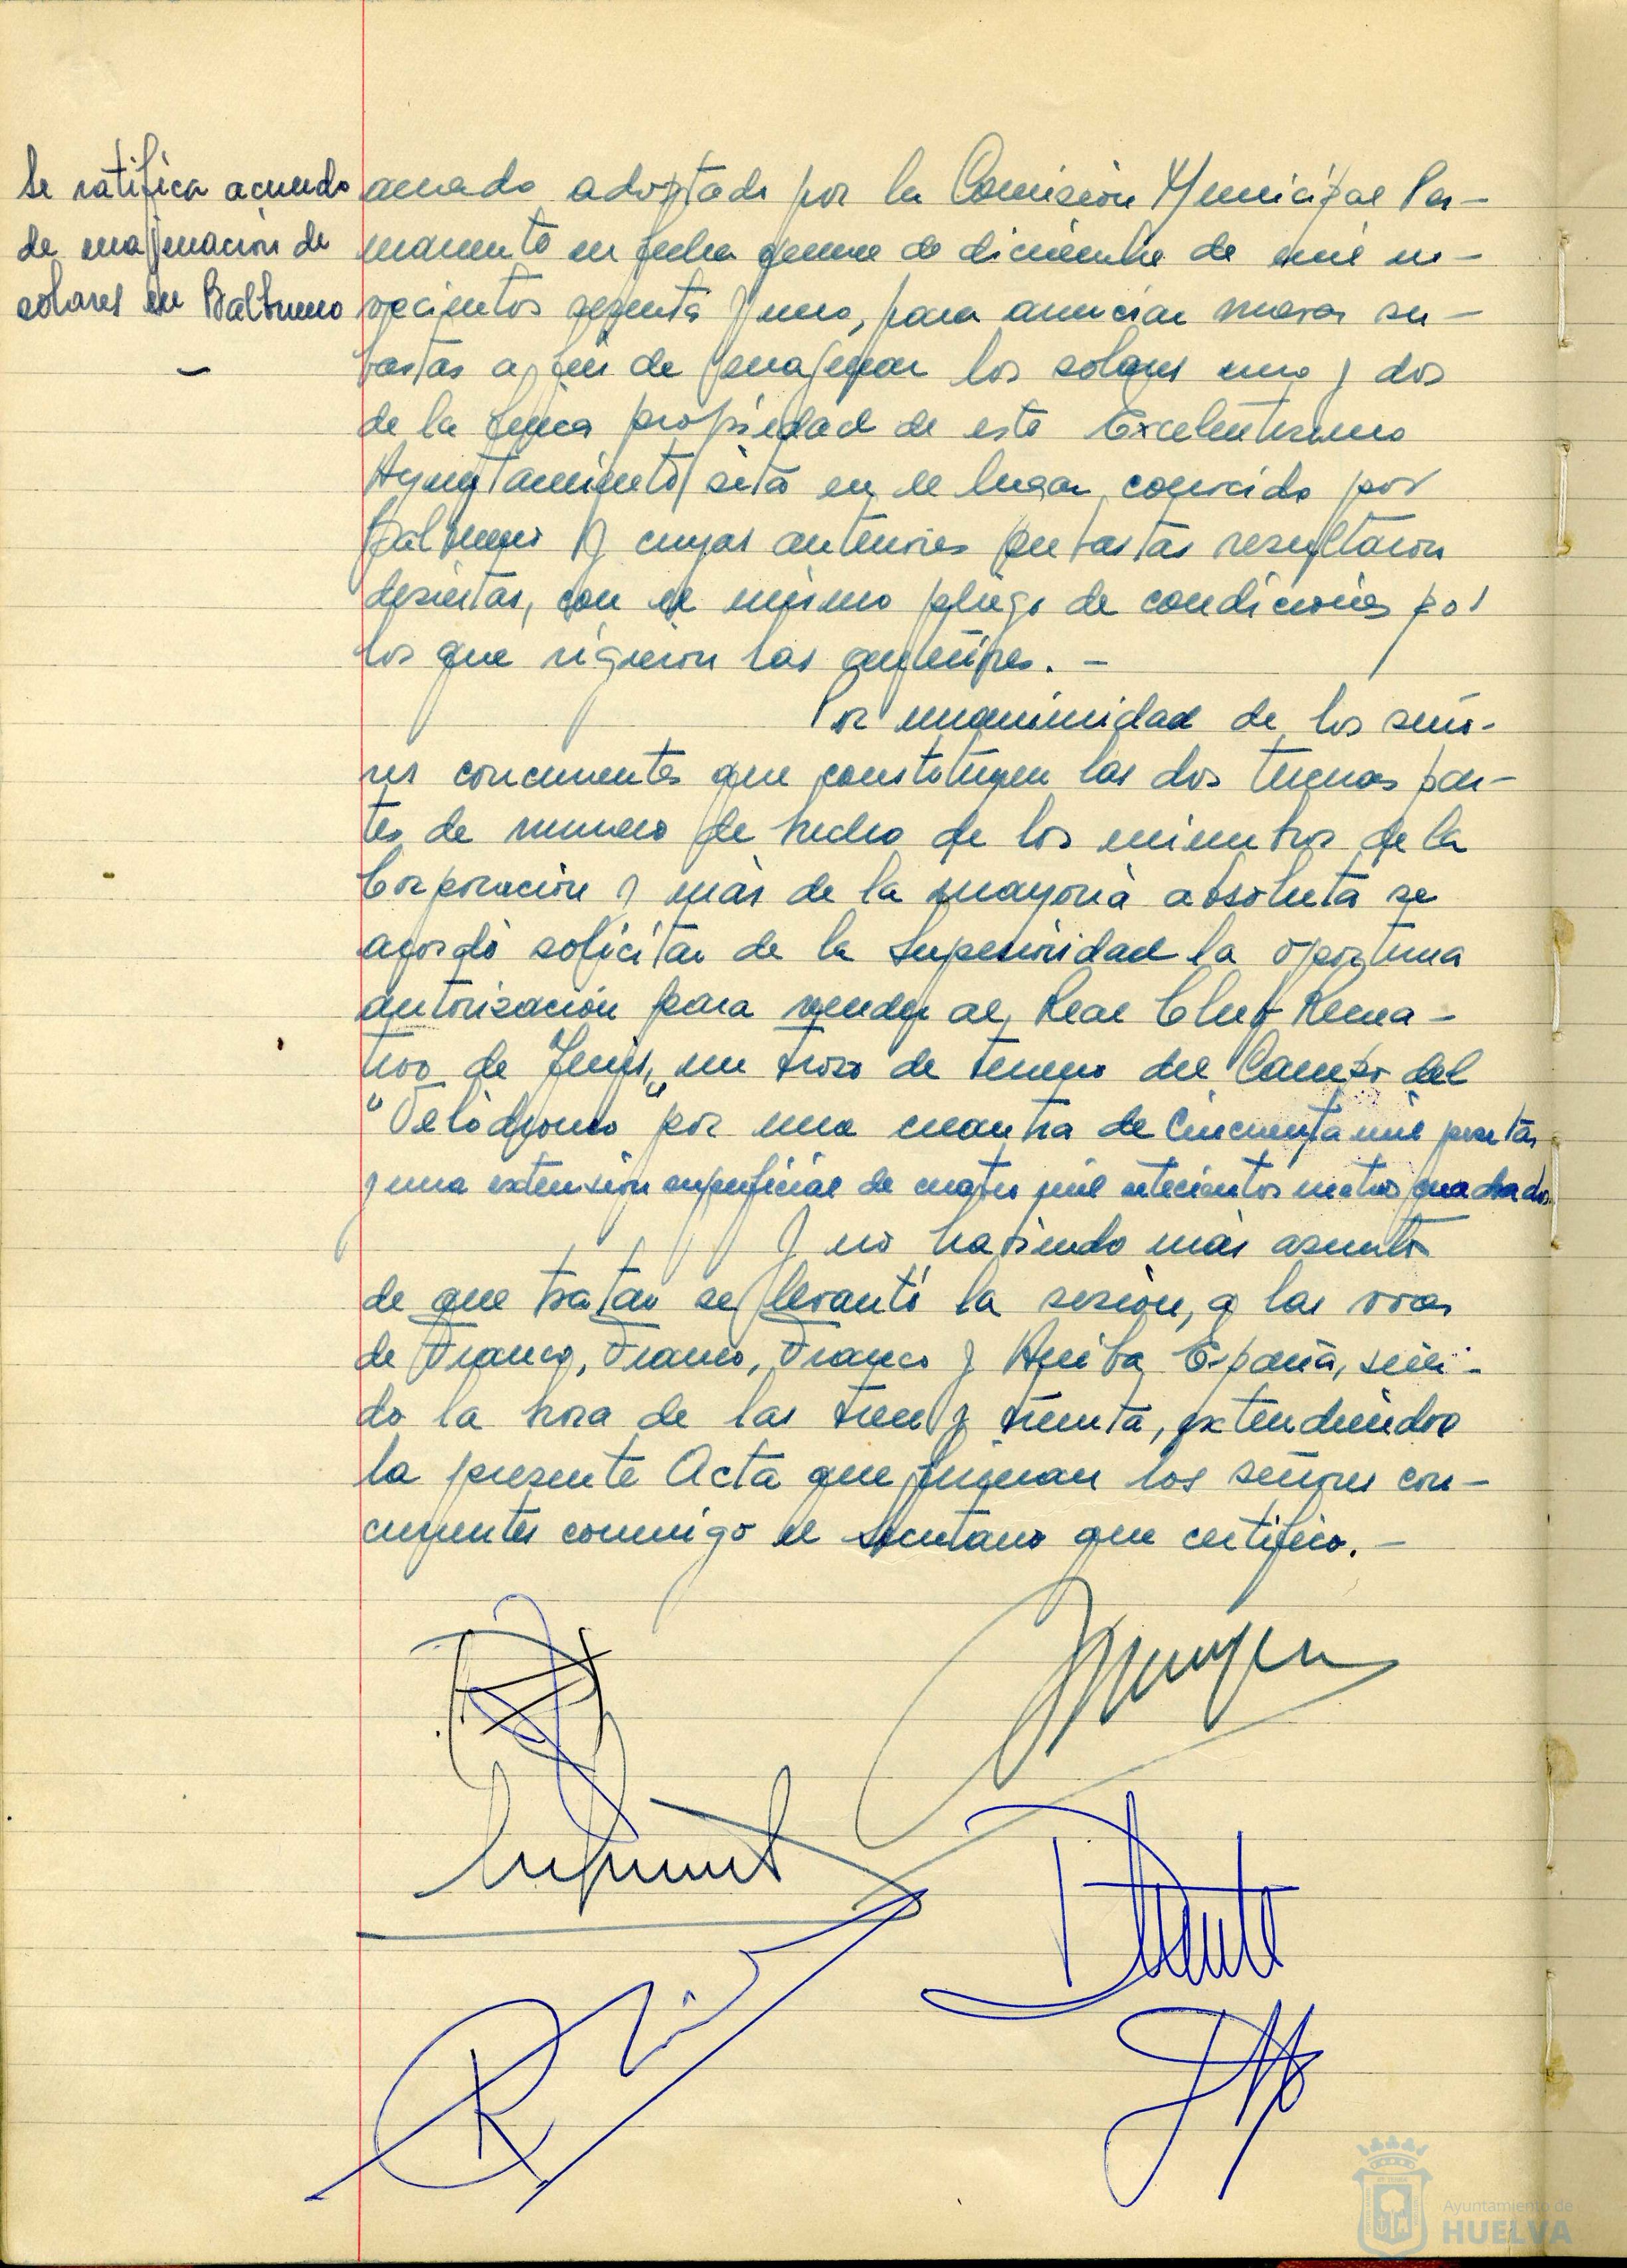 Se ratifica acuerdo
de enajenación de
solares en Balbueno
acuerdo adoptado por la Comisión Municipal Per-
manente en fecha quince de diciembre de mil no-
vecientos sesenta y uno, para anunciar nuevas su-
bastas a fin de enajenar los solares uno y dos
de la finca propiedad de este Excelentísimo
Ayuntamiento sita en el lugar conocido por
Balbueno y cuyas anteriores subastas resultaron
desiertas, con el mismo pliego de condiciones por
los que rigieron las anteriores. -
Por unanimidad de los seño-
res concurrentes que constituyen las dos terceras par-
tes de número de hecho de los miembros de la
Corporación y más de la mayoría absoluta se
acordó solicitar de la Superioridad la oportuna
autorización para vender al Real Club Recrea-
tivo de Tenis, un trozo de terreno del Campo del
"Velódromo" por una cuantía de Cincuenta mil pesetas
y una extensión superficial de cuatro mil setecientos metros cuadrados.
Y no habiendo más asuntos
de que tratar se levantó la sesión, a las voces
de Franco, Franco, Franco y Arriba España, sien-
do la hora de las trece y treinta, extendiéndose
la presente Acta que firman los señores con-
currentes conmigo el Secretario que certifico. -
Ayuntamiento de
HUELVA